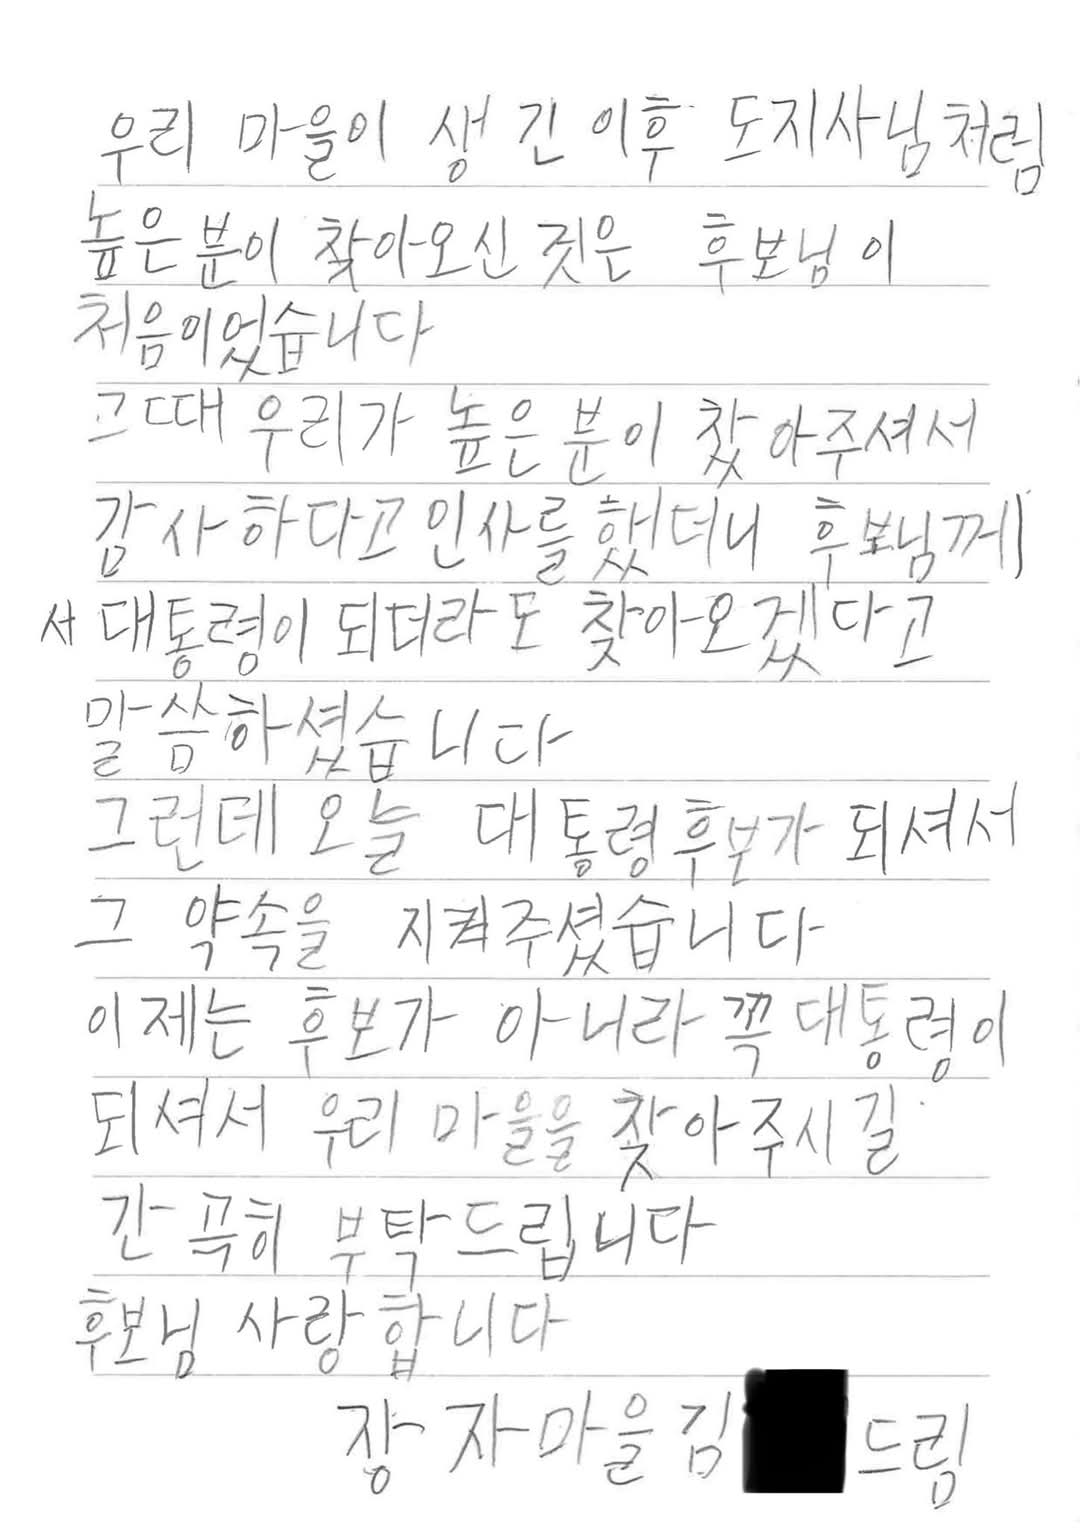 우리 마을이 생긴 이후 도지사님처럼
높은 분이 찾아오신 것은 후보님이
처음이었습니다
그때 우리가 높은 분이 찾아주셔서
감사하다고 인사를 했더니 후보님께
서 대통령이 되더라도 찾아오겠다고
말씀하셨습니다
그런데 오늘 대통령후보가 되셔서
그 약속을 지켜주셨습니다
이제는 후보가 아니라 꼭 대통령이
되셔서 우리 마을을 찾아주시길
간곡히 부탁드립니다
후보님 사랑합니다
장자마을 김 드림